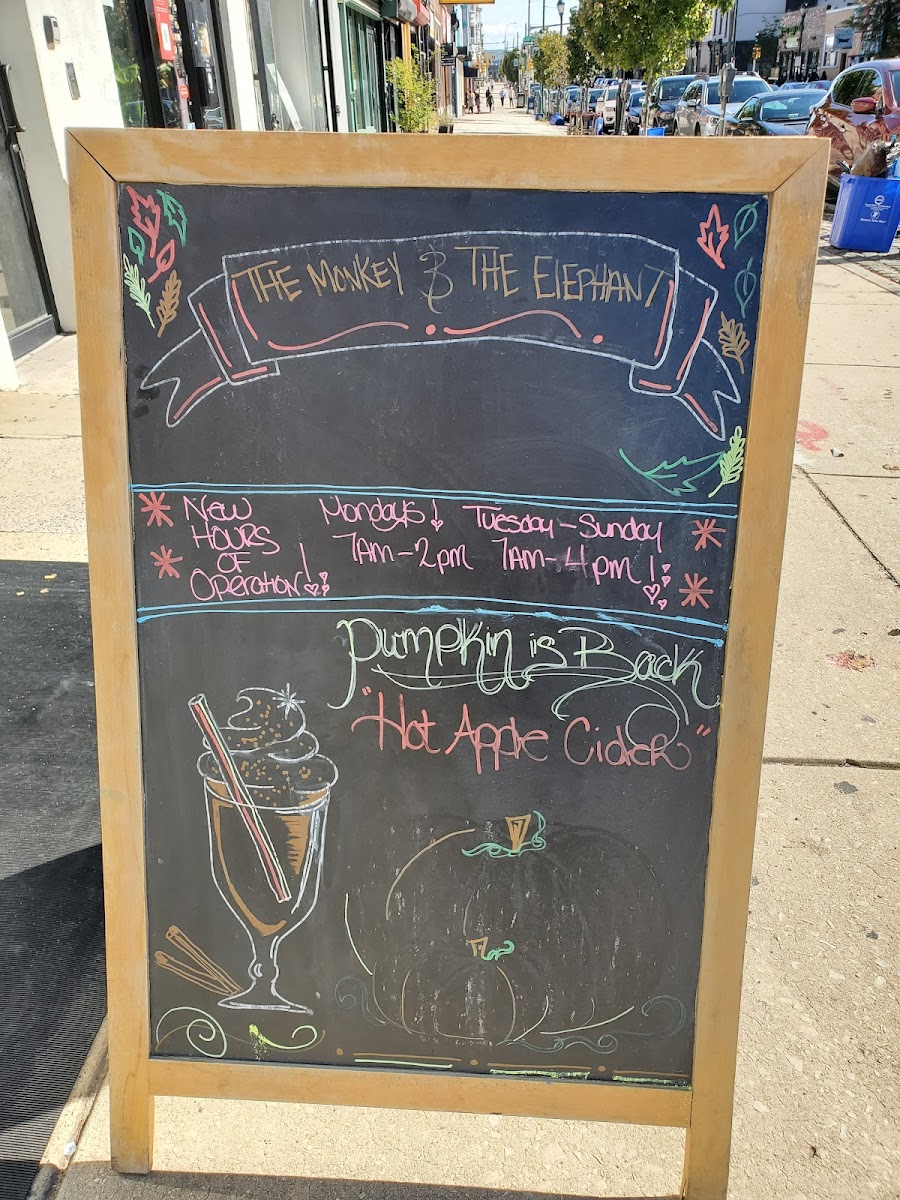 THE MONKEY & THE ELEPHANT
NEW
HOURS
OF
OPERATION!
Mondays!
7AM-2pm
Tuesday-Sunday
7AM-4pm!
Pumpkin is Back
"Hot Apple Cider"